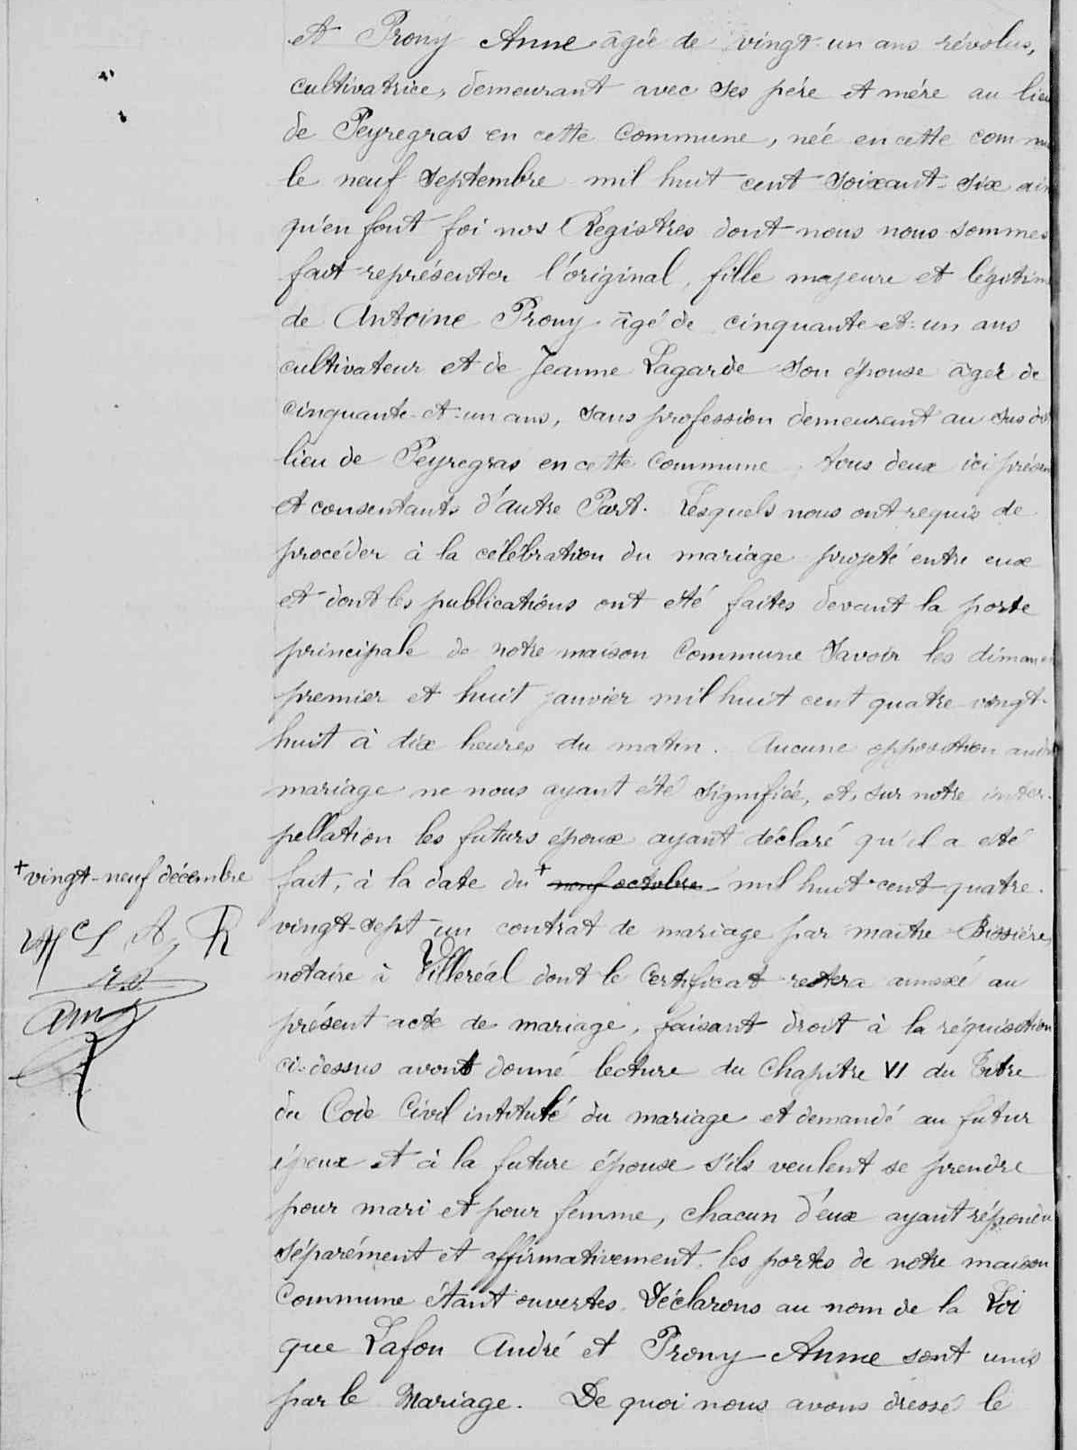 et Prony Anne âgée de vingt-un ans révolus,
cultivatrice, demeurant avec ses père et mère au lieu
de Peyregras en cette commune, née en cette comm
le neuf septembre mil huit cent soixant-six ain
qu'en font foi nos Registres dont nous nous sommes
fait représenter l'original, fille majeure et légitim
de Antoine Prony âgé de cinquante-et-un ans
cultivateur et de Jeanne Lagarde son épouse âgée de
cinquante-et-un ans, sans profession demeurant au susdit
lieu de Peyregras en cette commune tous deux ici présen
et consentants d'autre Part. Lesquels nous ont requis de
procéder à la célébration du mariage projeté entre eux
et dont les publications ont été faites devant la porte
principale de notre maison Commune Savoir les diman
premier et huit janvier mil huit cent quatre-vingt-
huit à dix heures du matin. Aucune opposition audit
mariage ne nous ayant été signifiée, et, sur notre inter-
pellation les futurs époux ayant déclaré qu'il a été
+ vingt-neuf décembre
fait, à la date du + neuf octobre mil huit-cent-quatre-
vingt-sept un contrat de mariage par maître Bissière
notaire à Villeréal dont le Certificat restera annexé au
présent acte de mariage, faisant droit à la réquisition
ci-dessus avont donné lecture du Chapitre VI du Titre
du Code Civil intitulé du mariage et demandé au futur
époux et à la future épouse s'ils veulent se prendre
pour mari et pour femme, chacun d'eux ayant répondu
séparément et affirmativement. les portes de notre maison
Commune étant ouvertes. Déclarons au nom de la Loi
que Lafon André et Prony Anne sont unis
par le Mariage. De quoi nous avons dressé le